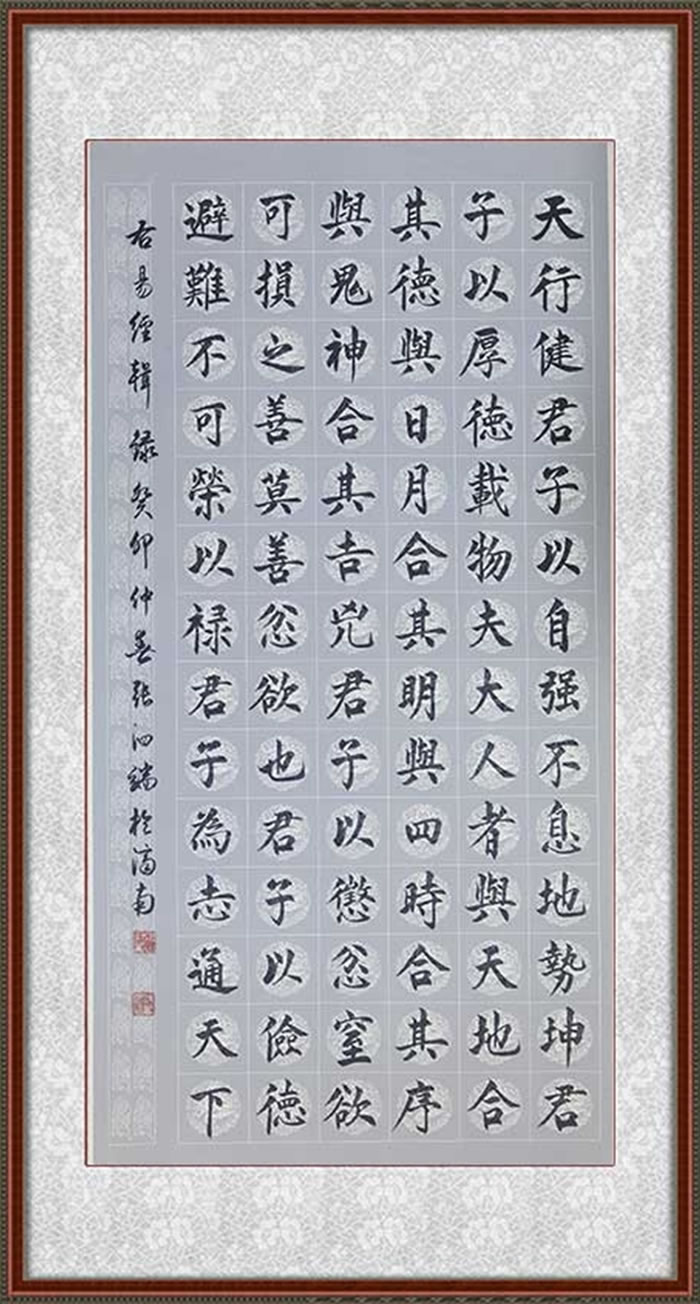 天行健君子以自强不息地勢坤君
子以厚德載物夫大人者與天地合
其德與日月合其明與四時合其序
與鬼神合其吉兇君子以懲忿窒欲
可損之善莫善忿欲也君子以儉德
避難不可榮以禄君子為志通天下
右易經輯録癸卯仲春张泗端於南